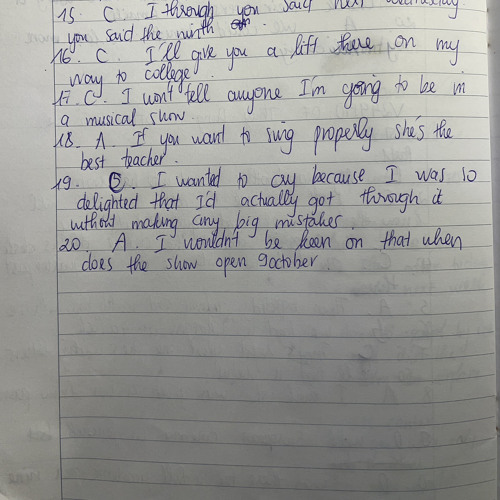 15. C. I through you said next Wednesday
you said the ninth.
16. C. I'll give you a lift there on my
way to college.
17. C. I won't tell anyone I'm going to be in
a musical show.
18. A. If you want to sing properly she's the
best teacher.
19. B. I wanted to cry because I was so
delighted that I'd actually got through it
without making any big mistakes.
20. A. I wouldn't be keen on that when
does the show open 9october.